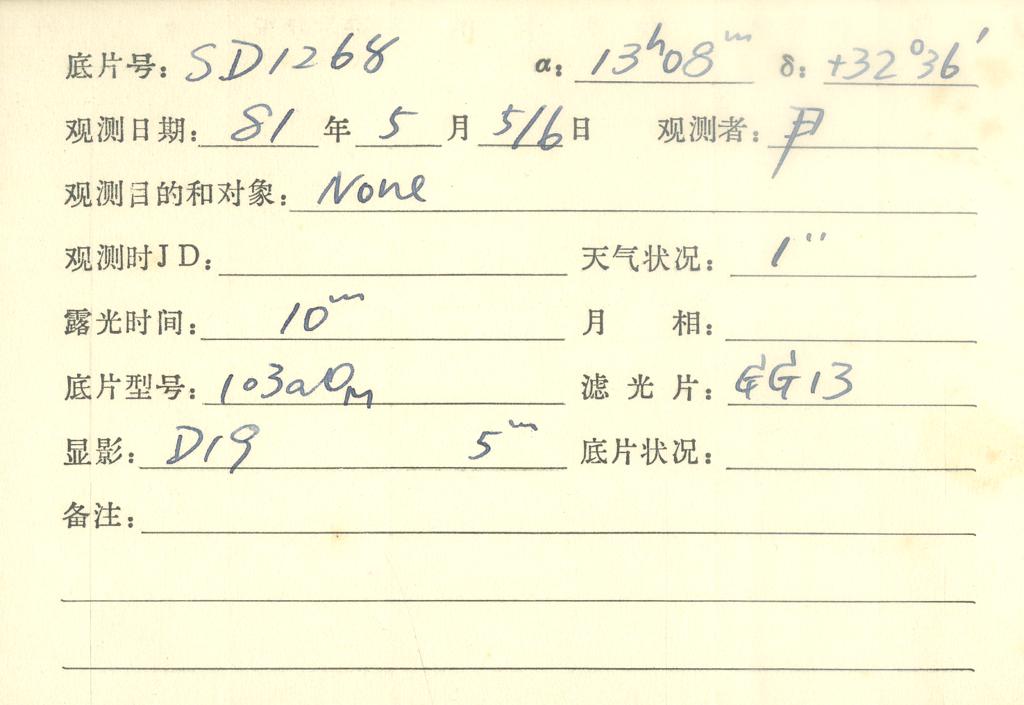 底片号: SD1268 α: 13ʰ08ᵐ δ: +32°36′
观测日期: 81 年 5 月 5/6 日 观测者: 尹
观测目的和对象: None
观测时JD: 天气状况: 1″
露光时间: 10ᵐ 月 相:
底片型号: 103aO 滤光片: GG13
显影: D19 5ᵐ 底片状况:
备注: